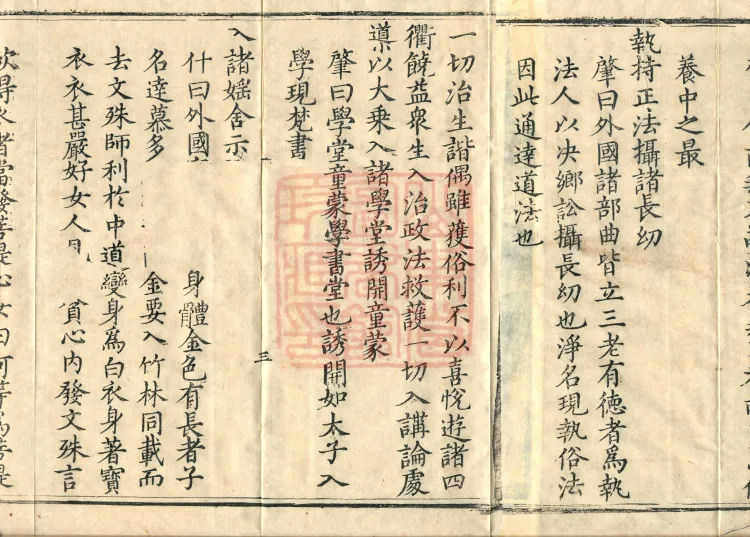 養中之最
執持正法攝諸長幼
肇曰外國諸部曲皆立三老有德者爲執
法人以决鄉訟攝長幼也淨名現執俗法
因此通達道法也
一切治生諧偶雖獲俗利不以喜悅遊諸四
衢饒益衆生入治政法救護一切入講論處
導以大乗入諸學堂誘開童蒙
肇曰學堂童蒙學書堂也誘開如太子入
學現梵書
三
入諸婬舍示
什曰外國 身體金色有長者子
名達慕多 金要入竹林同載而
去文殊師利於中道變身爲白衣身著寶
衣衣甚嚴好女人 貪心内發文殊言